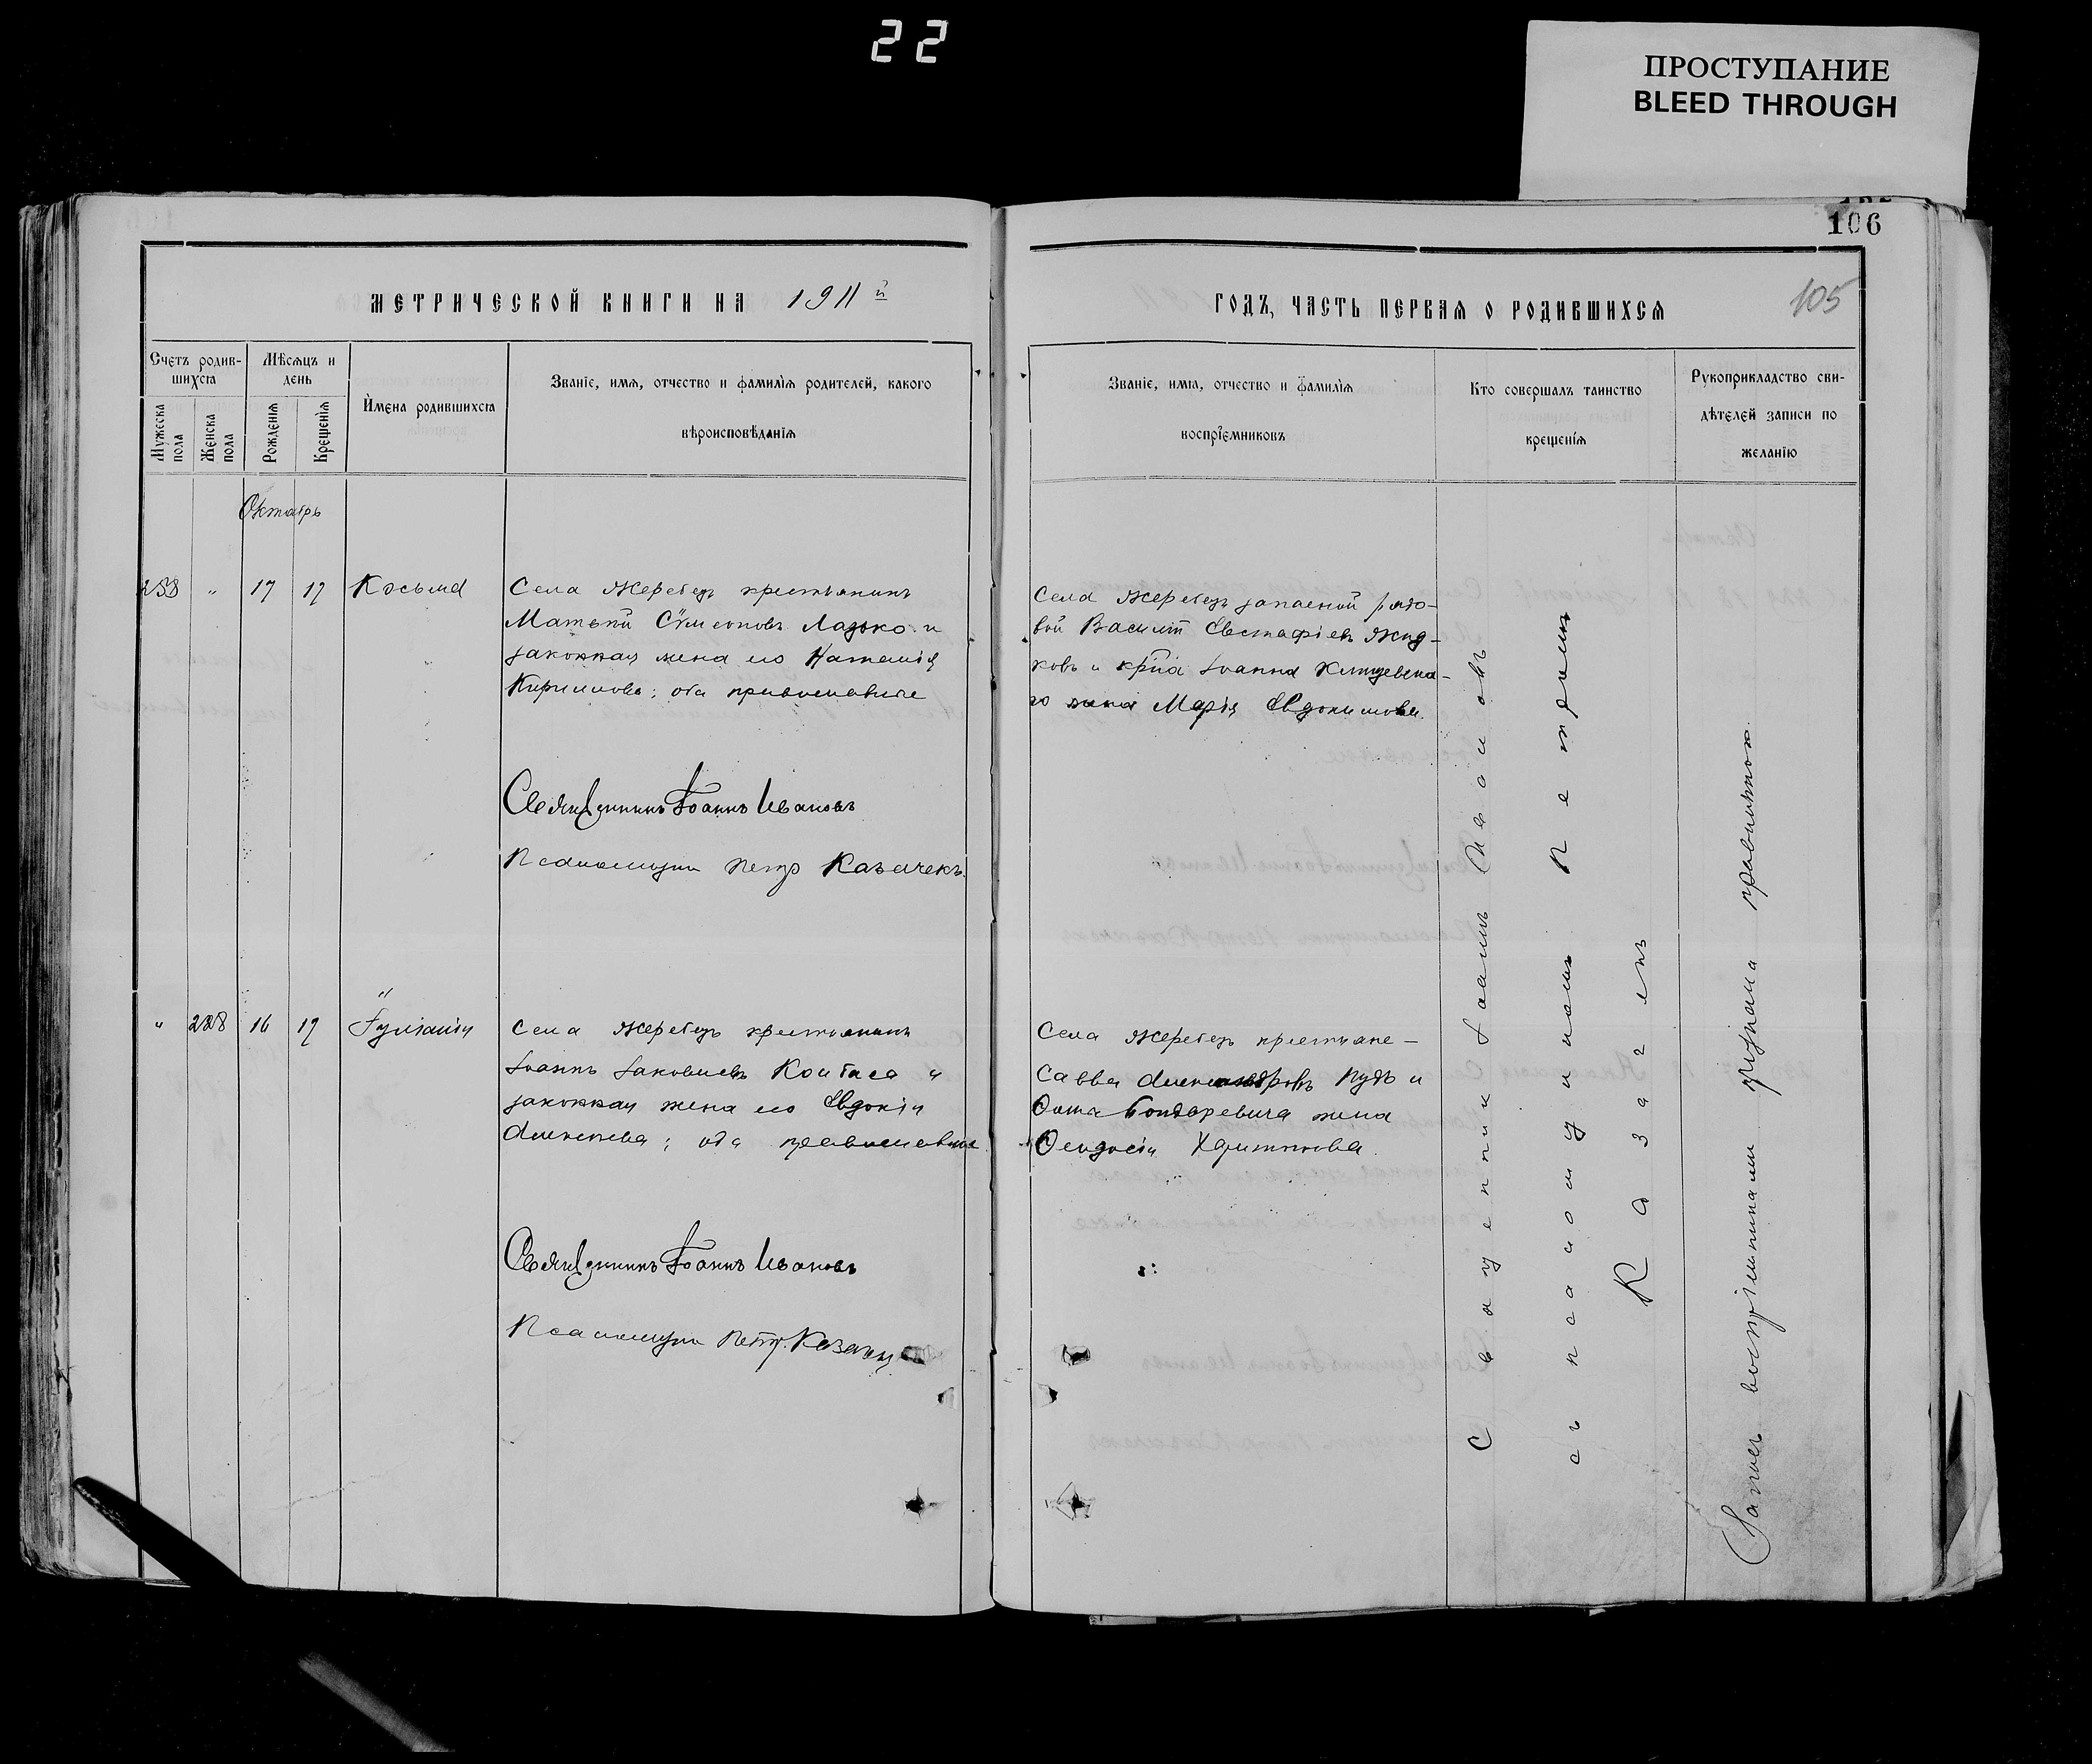 22
ПРОСТУПАНИЕ
BLEED THROUGH
106
МЕТРИЧЕСКОЙ КНИГИ НА 1911 й
ГОДЪ, ЧАСТЬ ПЕРВАЯ О РОДИВШИХСЯ
105
Счетъ родив-
шихся
Мужеска пола
Женска пола
Мѣсяцъ и
день
Рожденія
Крещенія
Имена родившихся
Званіе, имя, отчество и фамилія родителей, какого
вѣроисповѣданія
Званіе, имя, отчество и фамилія
воспріемниковъ
Кто совершалъ таинство
крещенія
Рукоприкладство сви-
дѣтелей записи по
желанію
Октябрь
258 " 17 17 Косьма
Села Жеребецъ крестьянинъ
Матѳій Сѵмеоновъ Ладько и
законная жена его Наталія
Кириллова; оба православные
Священникъ Іоаннъ Ивановъ
Псаломщикъ Петръ Казачекъ.
Села Жеребецъ запасной рядо-
вой Василій Евстафіевъ Жид-
ковъ и кр҃на Іоанна
го жена Марія Евдокимова.
" 228 16 17 Іуліанія
Села Жеребецъ крестьянинъ
Іоаннъ Іаковлевъ и
законная жена его Евдокія
Алексѣева; оба православные
Священникъ Іоаннъ Ивановъ
Псаломщикъ Петръ Казачекъ
Села Жеребецъ крестьяне
Савва Александровъ Пудъ и
Ѳомы Бондаревича жена
Ѳеодосія Харитонова.
Священникъ Іоаннъ Ивановъ
съ псаломщикомъ Петромъ
Казачекъ
Запись воспріемниками признана правильною.